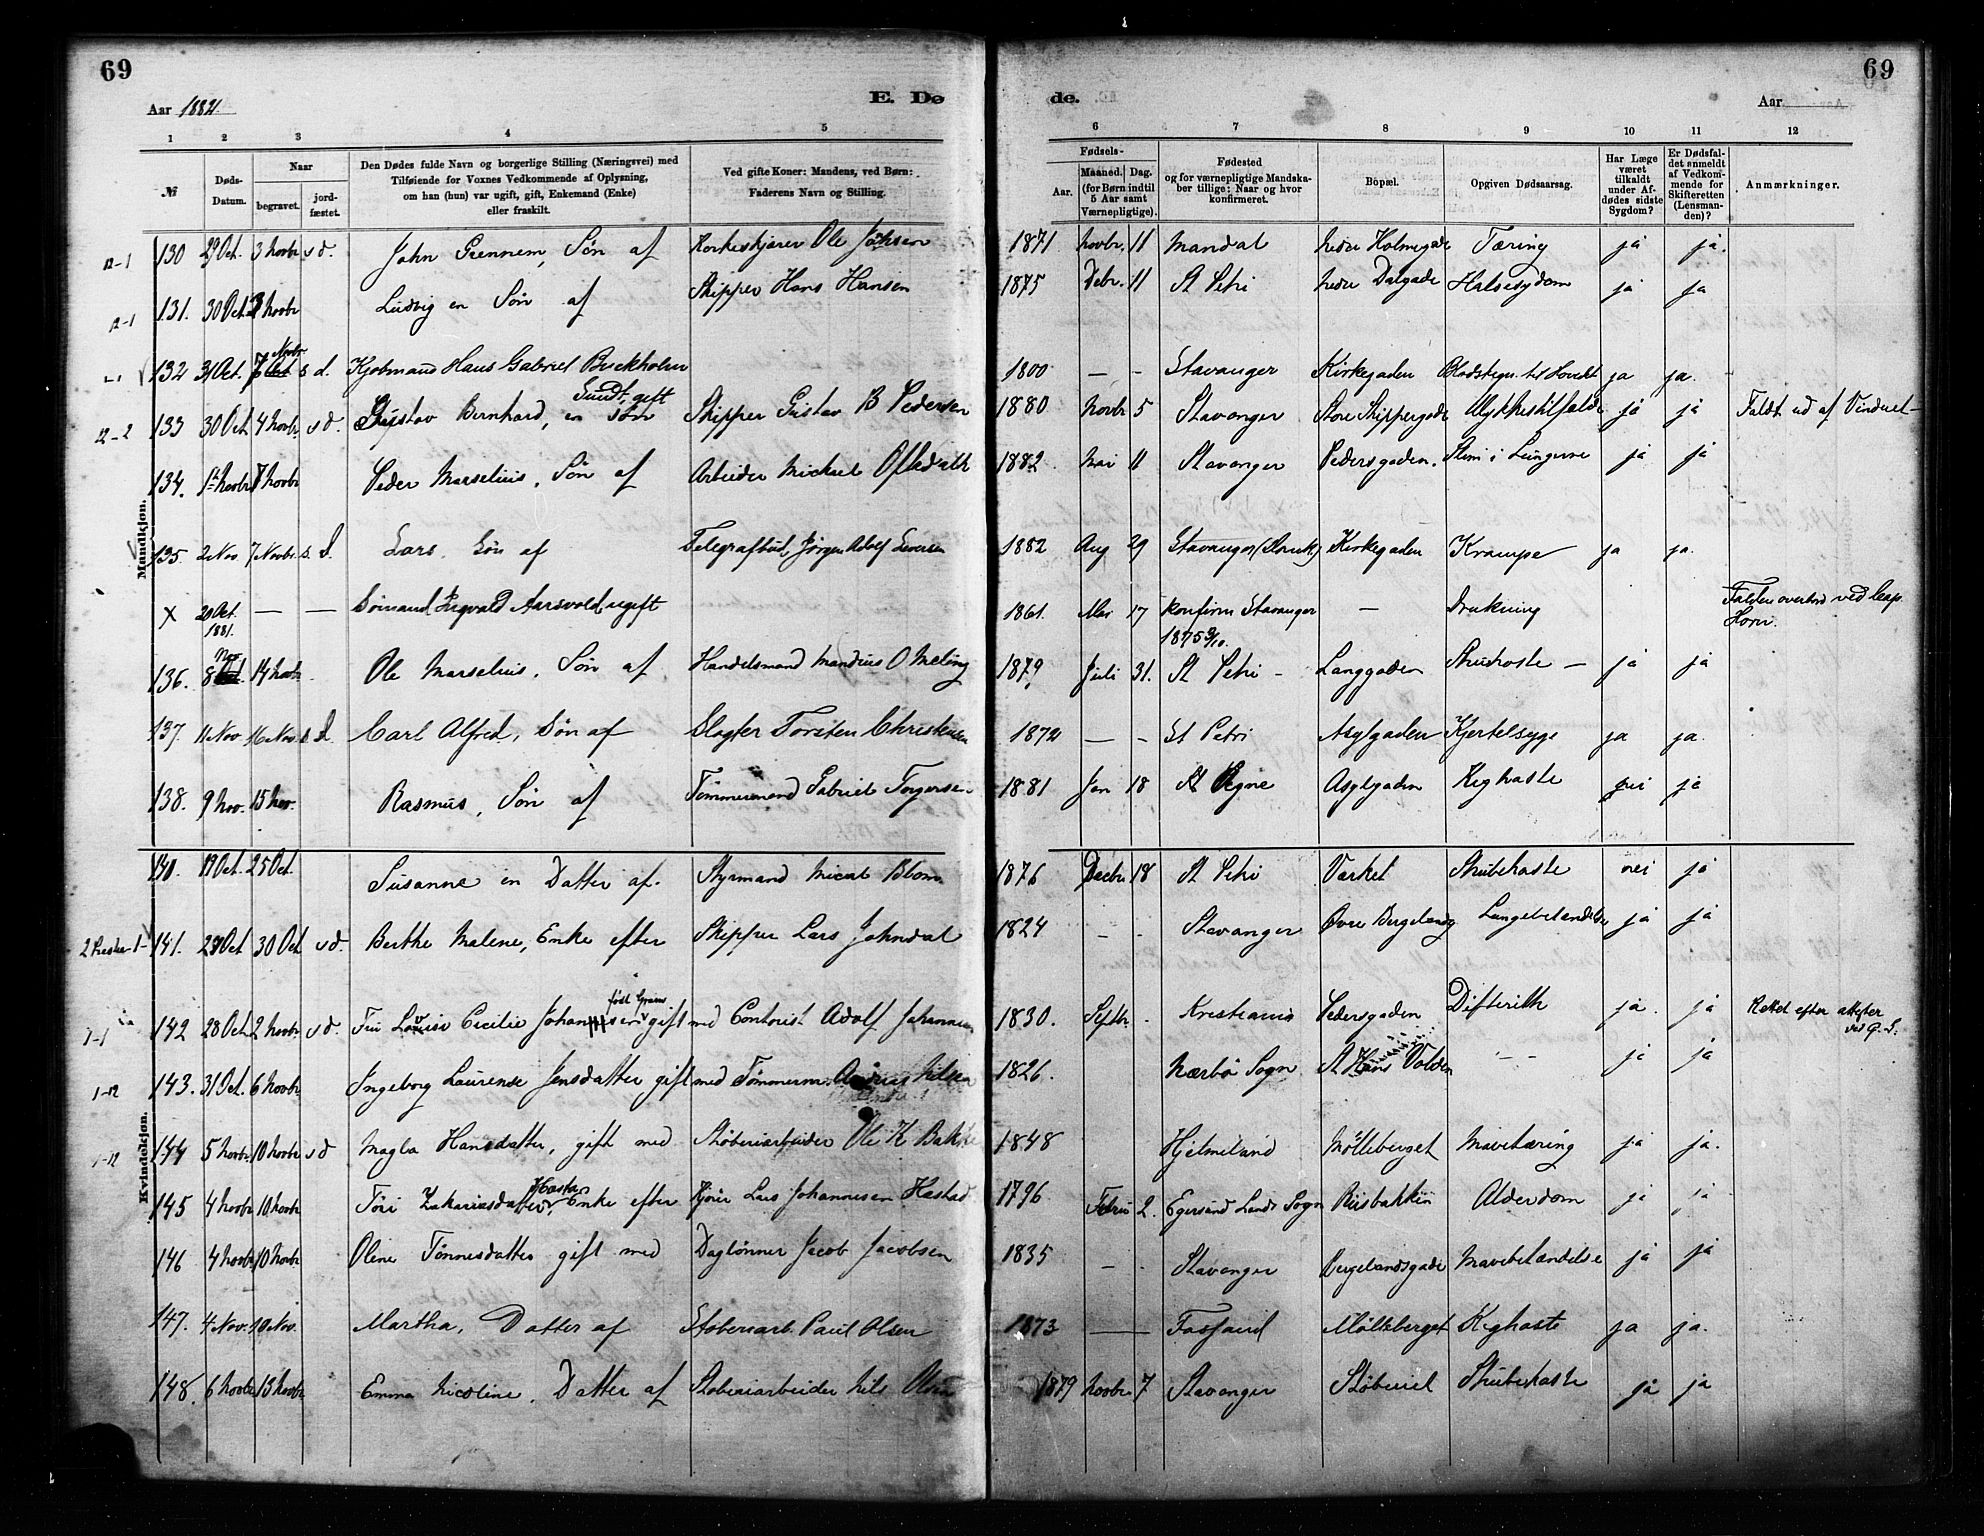 69
69
Aar 1882.
E. Dø
de.
Aar
1 2 3 4 5 6 7 8 9 10 11 12
№
Døds-Datum.
Naar
begravet.
jord-fæstet.
Den Dødes fulde Navn og borgerlige Stilling (Næringsvei) med
Tilføiende for Voxnes Vedkommende af Oplysning,
om han (hun) var ugift, gift, Enkemand (Enke)
eller fraskilt.
Ved gifte Koner: Mandens, ved Børn:
Faderens Navn og Stilling.
Fødsels-
Aar.
Maaned. Dag.
(for Børn indtil
5 Aar samt
Værnepligtige).
Fødested
og for værnepligtige Mandska-
ber tillige: Naar og hvor
konfirmeret.
Bopæl.
Opgiven Dødsaarsag.
Har Læge
været
tilkaldt
under Af-
dødes sidste
Sygdom?
Er Dødsfal-
det anmeldt
af Vedkom-
mende for
Skifteretten
(Lensman-
den)?
Anmærkninger.
Mandkjøn.
12-1 130 29 Oct. 3 Novbr s d. John Grennem, Søn af Ole 1871 Novbr. 11 Mandal nedre Holmegade Tæring ja ja.
12-1 131. 30 Oct. 3 Novbr Ludvig en Søn af Skipper Hans Hansen 1875 Debr. 11 St Petri nedre Dalgade Halssygdom ja ja
132 31 Oct. 7 Novbr s d. Kjøbmand Hans Gabriel Buckholm Sundt, gift 1800 — - Stavanger Kirkegaden Blodstign. til Hovedet ja ja.
12-2 133 30 Oct 4 Novbr. s d. Gustav Bernhard, en Søn Skipper Gustav B Pedersen 1880 Novbr 5 Stavanger Store Skippergade Ulykkestilfælde ja ja Faldt ud af Vinduet
134. 1ste Novbr 7 Novbr Peder Marselius, Søn af Arbeider Michael Oftedahl 1882 Mai 11 Stavanger Pedersgaden. Slim i Lungerne ja ja
135. 2 Nov 7 Novbr. s. d. Lars, Søn af Telegrafbud, Jørgen Adolf Iversen 1882 Aug 29 Stavanger Kirkegaden Krampe ja ja.
X 20 Oct. 1881. — — Sømand Ingvald Aarsvold, ugift 1861. Mai 17 konfirm Stavanger 1875 — Drukning Falden overbord ved Cap Horn.
136. 8 Nov 14 Novbr Ole Marselius, Søn af Handelsmand Mandius O Meling 1879 Juli 31. St Petri - Langgaden Struhoste — ja ja
137. 11 Nov. 16 Nov. s. d. Carl Alfred, Søn af Slagter Torsten Christensen 1872 — - St Petri Asylgaden Kjertelsyge ja ja.
138. 9 Nov. 15 Nov. Rasmus, Søn af Tømmermand Gabriel Torgersen 1881 Jan 18 Asylgaden Kighoste nei ja
Kvindekjøn.
140. 19 Oct. 25 Oct. Susanne en Datter af. Styrmand Blom 1876 Decbr 18 St Petri Varket Strubehoste nei ja
141. Oct 30 Oct s d. Berthe Malene, Enke efter Skipper Lars Johndal 1824 - - Stavanger Øvre Bergelandsg Lungebetændelse ja ja
1-1 142 28 Oct. 2 Novbr s d. Fru Louise Cecilie Johannesen født Gram gift med Contorist Adolf Johannesen 1830. Septbr. - Kristiania Pedersgaden Difterith ja ja Rettet efter attester ved G. S.
1-12 143. 31 Oct. 6 Novbr Ingeborg Laurense Jensdatter gift med Tømmerm. Andreas Nilsen 1826. Nærbø Sogn St Hans Volden - - ja ja
1-12 144 5 Novbr 10 Novbr s d Magla Hansdatter, gift med Støberiarbeider Ole K Bakke 1848 Hjelmeland Mølleberget Mavetæring ja ja.
145 4 Novbr 10 Novbr Tøri Zakariasdatter Hastad, Enke efter Lars Johannesen Hastad 1796 Februar 2. Egersund Lands Sogn Riisbakken Alderdom ja ja
146 4 Novbr. 10 Novbr. Oline Tønnesdatter gift med Daglønner Jacob Jacobsen 1835 - Stavanger Bergelandsgade Mavebetændelse ja ja
147. 4 Nov. 10 Nov. Martha, Datter af Støberiarb. Paul Olsen 1873 — — Fossand Mølleberget Kighoste ja ja.
148. 6 Novbr 13 Novbr Emma Nicoline, Datter af Støberiarbeider Nils Olsen 1879 Novbr. 7 Stavanger Støberiet Strubehoste ja ja